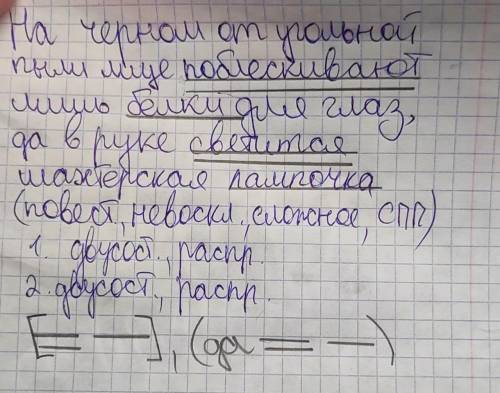 На черном от угольной
пыли лице поблескивают
лишь белки для глаз,
да в руке светится
шахтерская лампочка
(повест., невоскл., сложное, СПП)
1. двусост., распр.
2. двусост., распр.
[= —], (да = —)